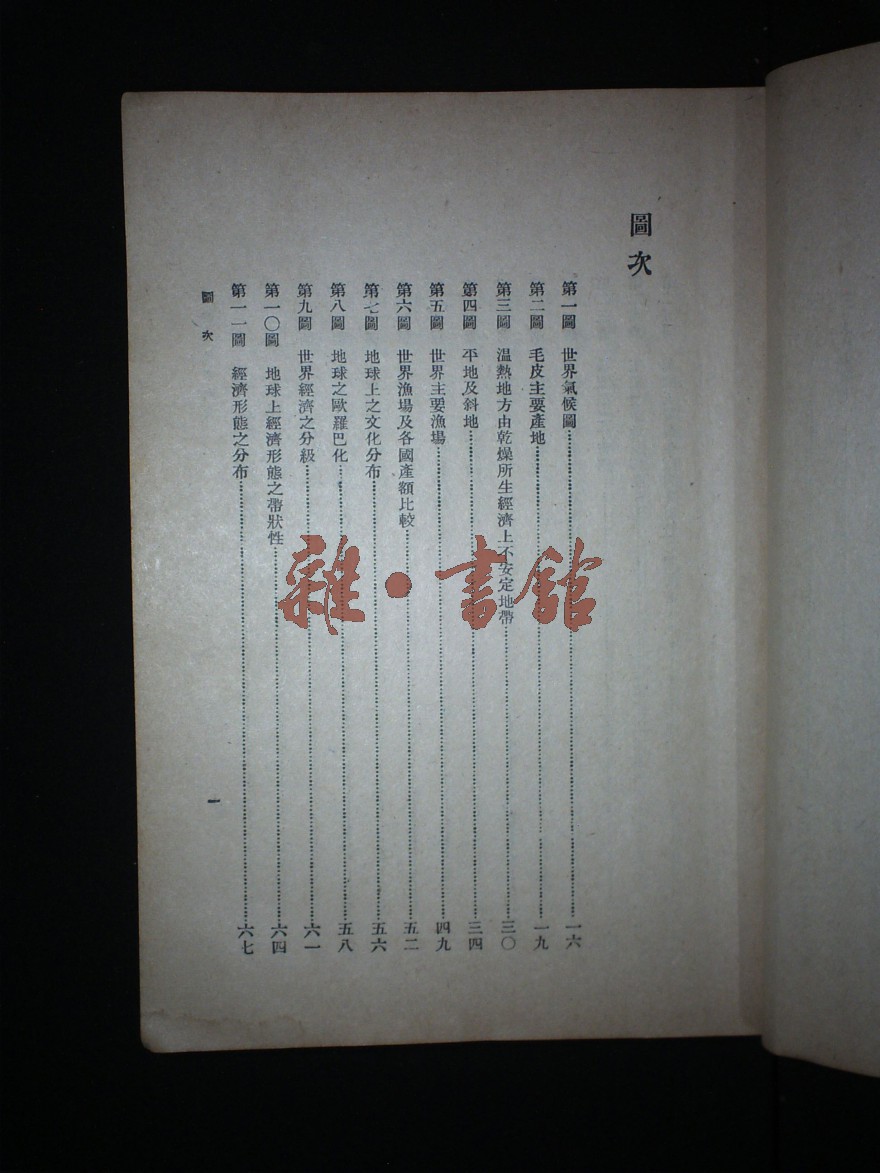 圖次
第一圖 世界氣候圖……一六
第二圖 毛皮主要產地……一九
第三圖 温熱地方由乾燥所生經濟上不安定地帶……三〇
第四圖 平地及斜地……三四
第五圖 世界主要漁場……四九
第六圖 世界漁場及各國產額比較……五二
第七圖 地球上之文化分布……五六
第八圖 地球之歐羅巴化……五八
第九圖 世界經濟之分級……六一
第一〇圖 地球上經濟形態之帶狀性……六四
第一一圖 經濟形態之分布……六七
圖次
一
雜·書館